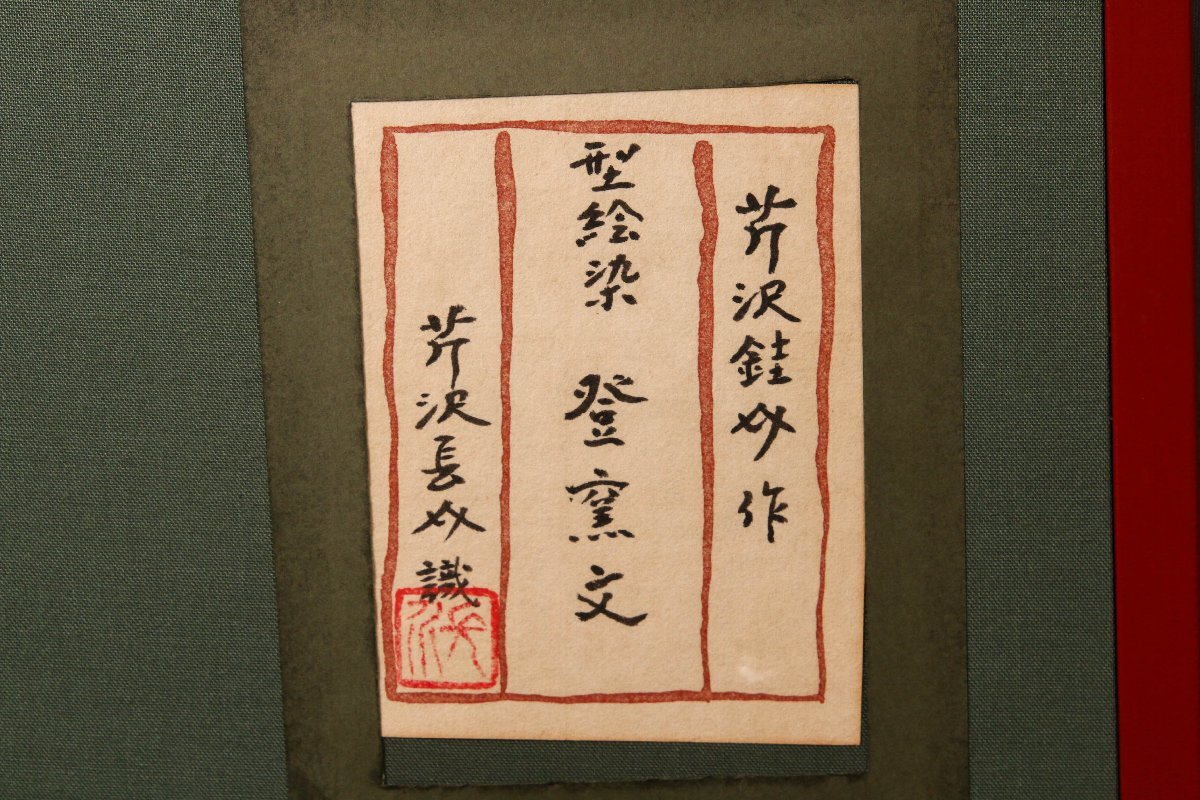 芹沢銈介 作
型絵染 登窯文
芹沢長介 識